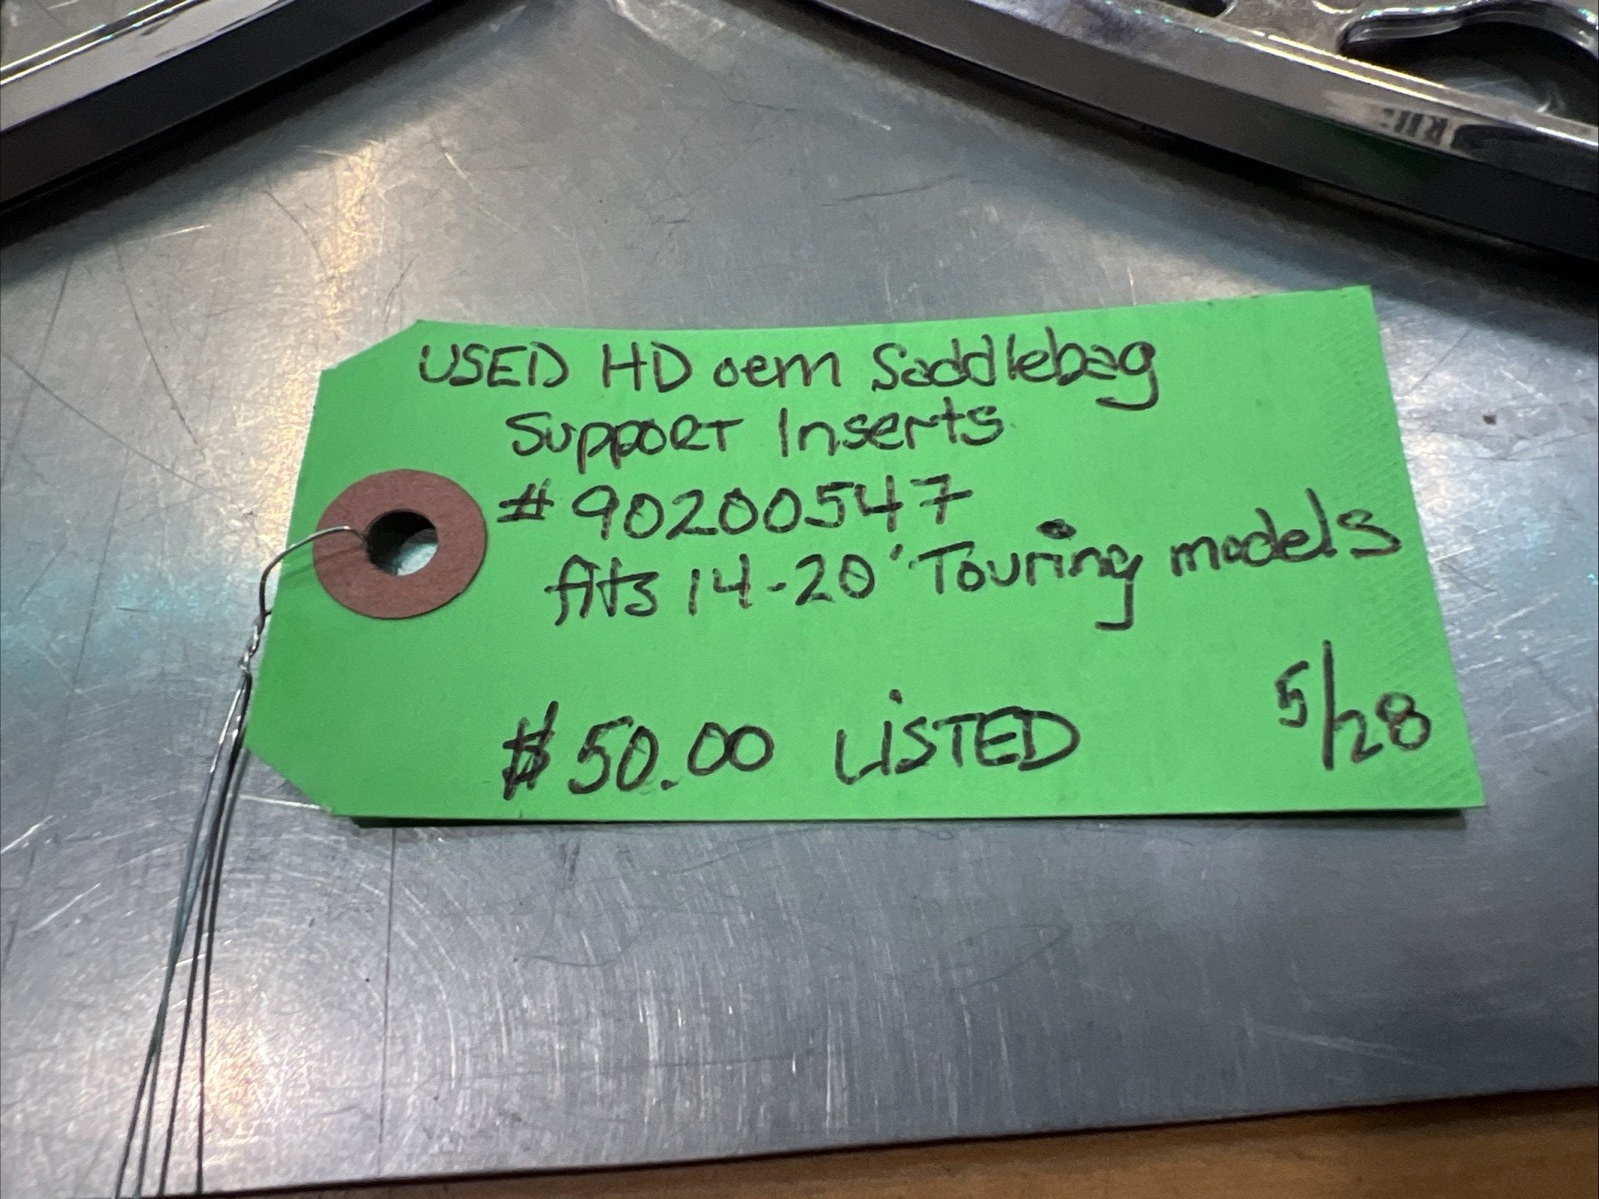 USED HD oem Saddlebag
Support Inserts
#90200547
fits 14-20' Touring models
$50.00 LiSTED 5/28